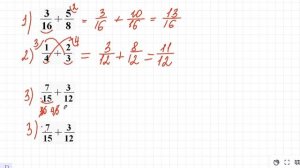 1) 3/16 + 5/8 ·2 = 3/16 + 10/16 = 13/16
2) 3) 1/4 + 2/3 (4 = 3/12 + 8/12 = 11/12
3) 7/15 + 3/12
3) 7/15 + 3/12